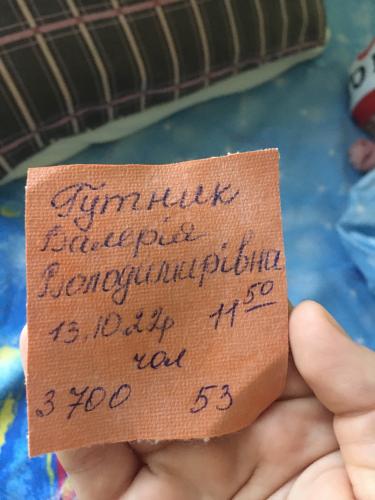 Гутник
Валерія
Володимирівна
13.10.22р 11 50
чол
3700 53